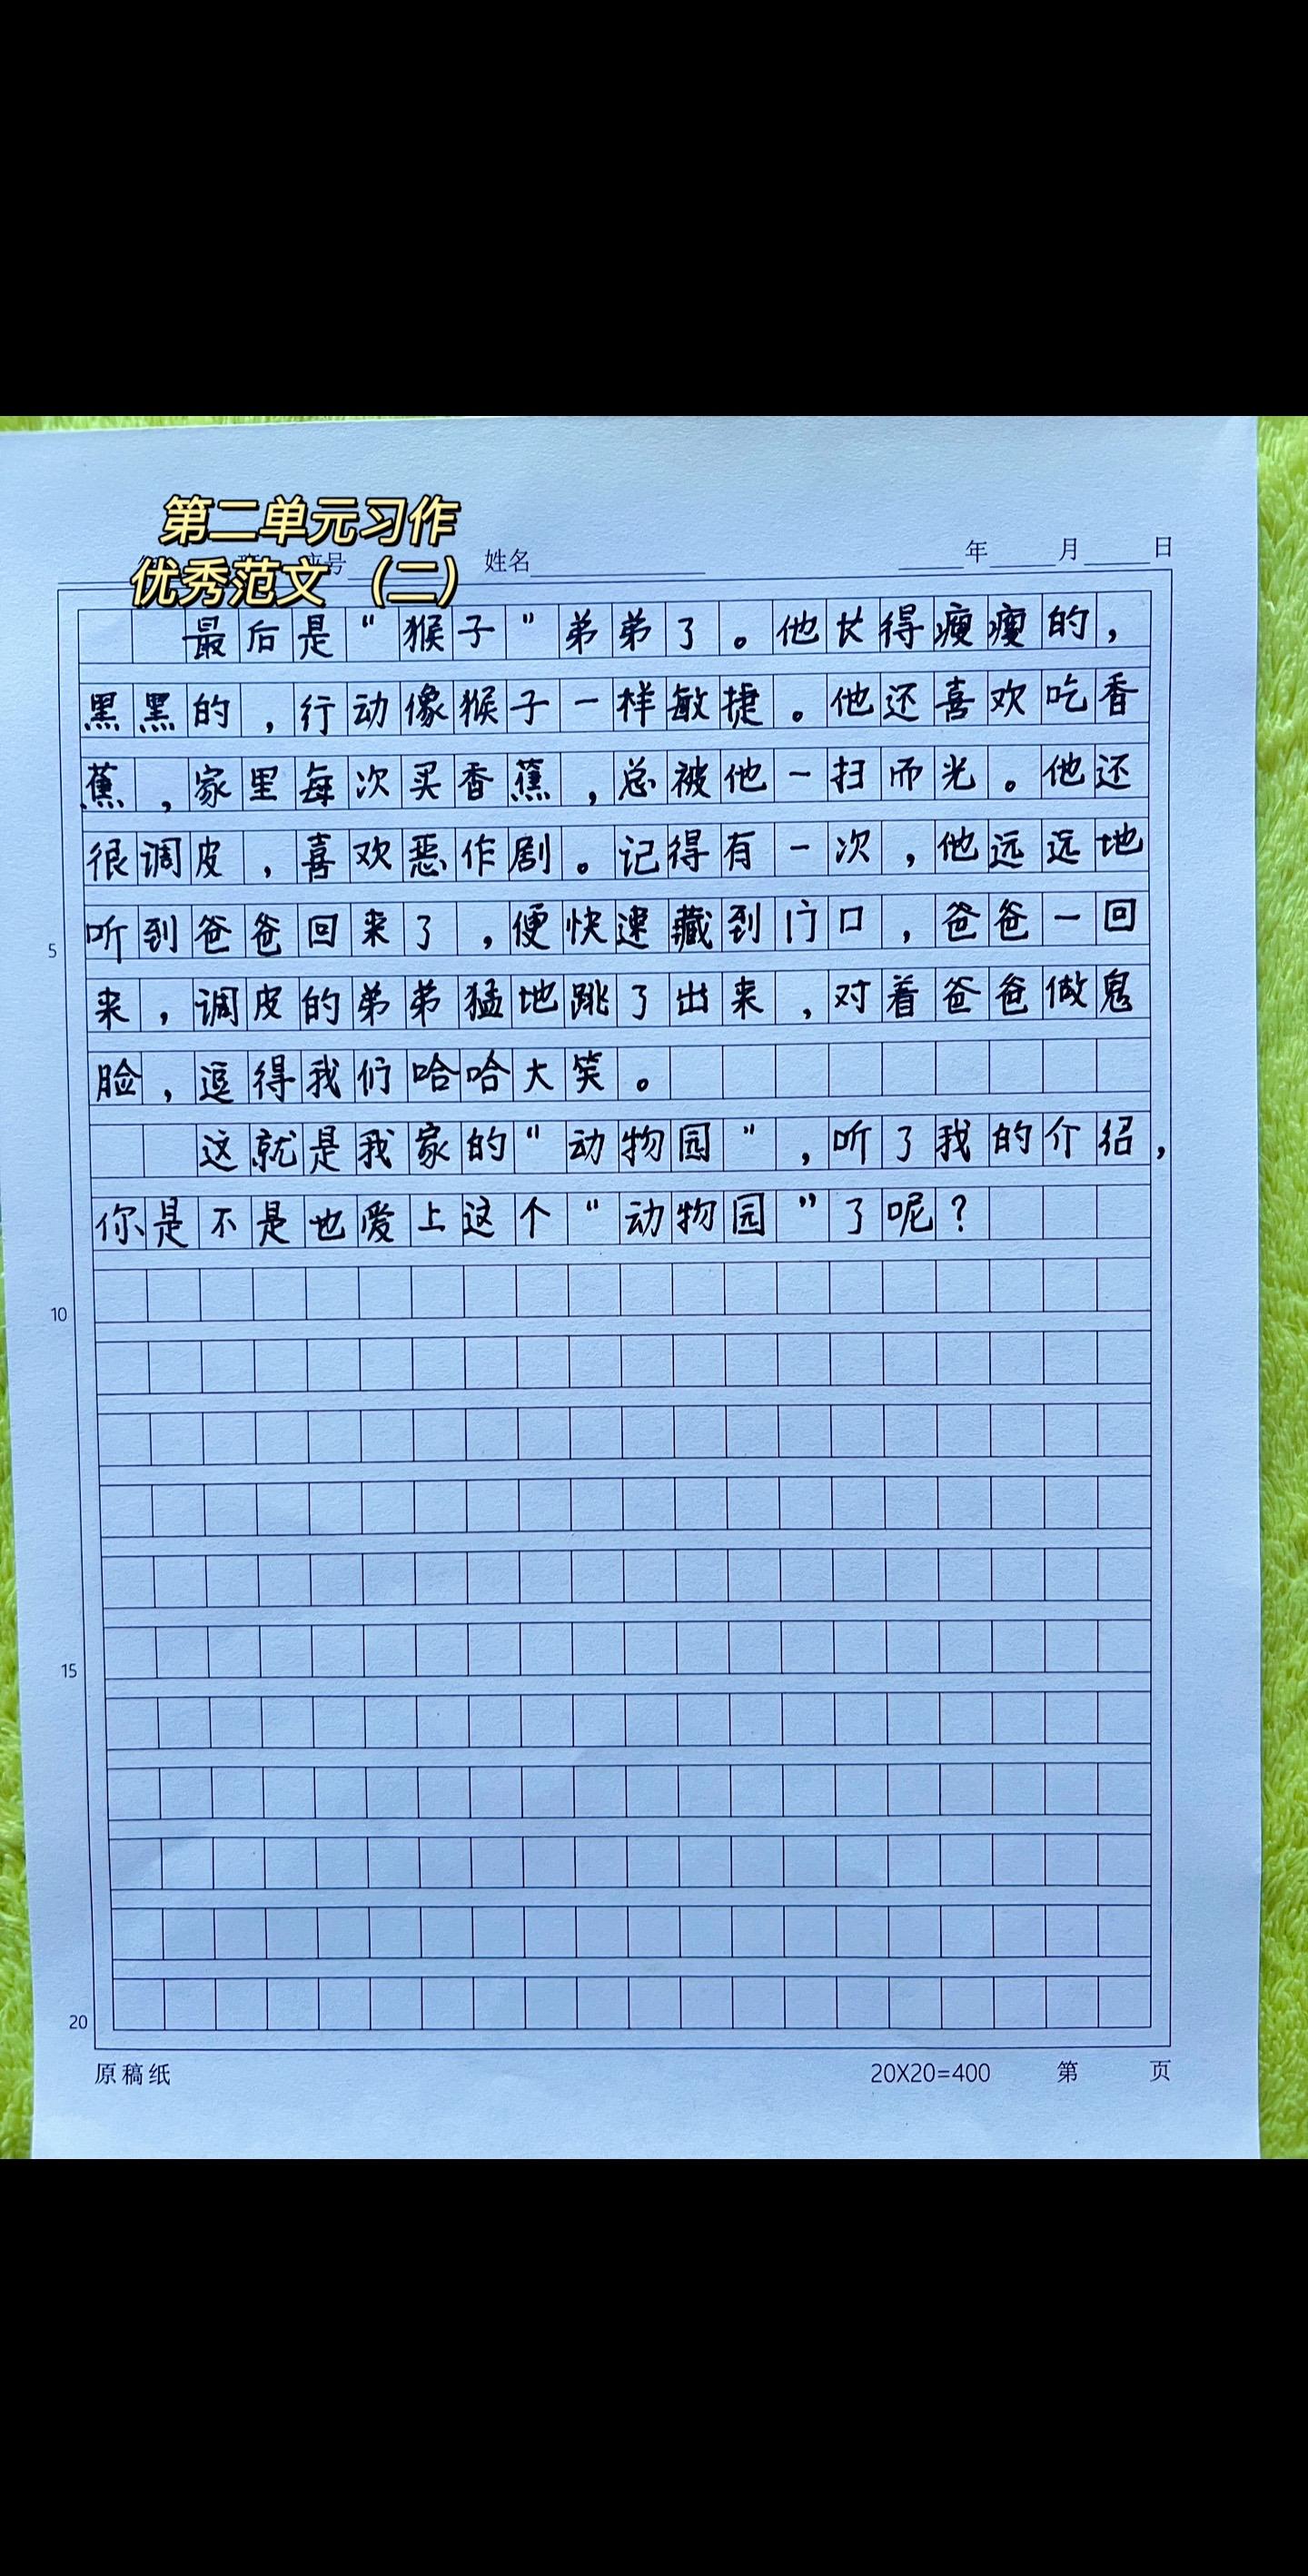 第二单元习作
优秀范文（二）
号 姓名 年 月 日
最后是“猴子”弟弟了。他长得瘦瘦的，
黑黑的，行动像猴子一样敏捷。他还喜欢吃香
蕉，家里每次买香蕉，总被他一扫而光。他还
很调皮，喜欢恶作剧。记得有一次，他远远地
听到爸爸回来了，便快速藏到门口，爸爸一回
5
来，调皮的弟弟猛地跳了出来，对着爸爸做鬼
脸，逗得我们哈哈大笑。
这就是我家的“动物园”，听了我的介绍，
你是不是也爱上这个“动物园”了呢？
10
15
20
原稿纸 20X20=400 第 页